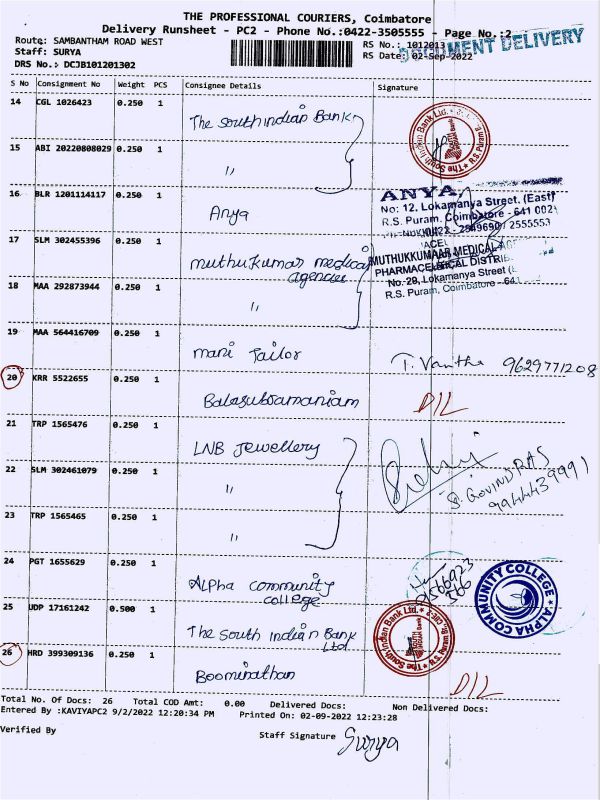 THE PROFESSIONAL COURIERS, Coimbatore
Delivery Runsheet - PC2 - Phone No.:0422-3505555 - Page No.:2
Route: SAMBANTHAM ROAD WEST
RS No.: 1012013
DOCUMENT DELIVERY
Staff: SURYA
RS Date: 02-Sep-2022
DRS No.: DCJB101201302
S No Consignment No Weight PCS Consignee Details Signature
14 CGL 1026423 0.250 1
The South indian Bank
The South Indian Bank Ltd.
R.S. Puram
15 ABI 20220808029 0.250 1
"
16 BLR 1201114117 0.250 1
Anya
ANYA
No: 12, Lokamanya Street, (East)
R.S. Puram, Coimbatore - 641 002
2549690 / 2555553
17 SLM 302455396 0.250 1
muthukumar medical
agencies
MUTHUKKUMAAR MEDICAL
PHARMACEUTICAL DISTRIB
No. 29, Lokamanya Street
R.S. Puram, Coimbatore - 641
18 MAA 292873944 0.250 1
"
19 MAA 564416709 0.250 1
mani Tailor
T. Vanitha 9629771208
20 KRR 5522655 0.250 1
Balasubramaniam
D/L
21 TRP 1565476 0.250 1
LNB Jewellery
22 SLM 302461079 0.250 1
"
S. GOVINDRAS
9944439991
23 TRP 1565465 0.250 1
"
24 PGT 1655629 0.250 1
Alpha community
college
ALPHA COMMUNITY COLLEGE
25 UDP 17161242 0.500 1
The South indian Bank
Ltd
The South Indian Bank Ltd.
26 HRD 399309136 0.250 1
Boominathan
D/L
Total No. Of Docs: 26 Total COD Amt: 0.00 Delivered Docs: Non Delivered Docs:
Entered By :KAVIYAPC2 9/2/2022 12:20:34 PM Printed On: 02-09-2022 12:23:28
Verified By
Staff Signature Surya